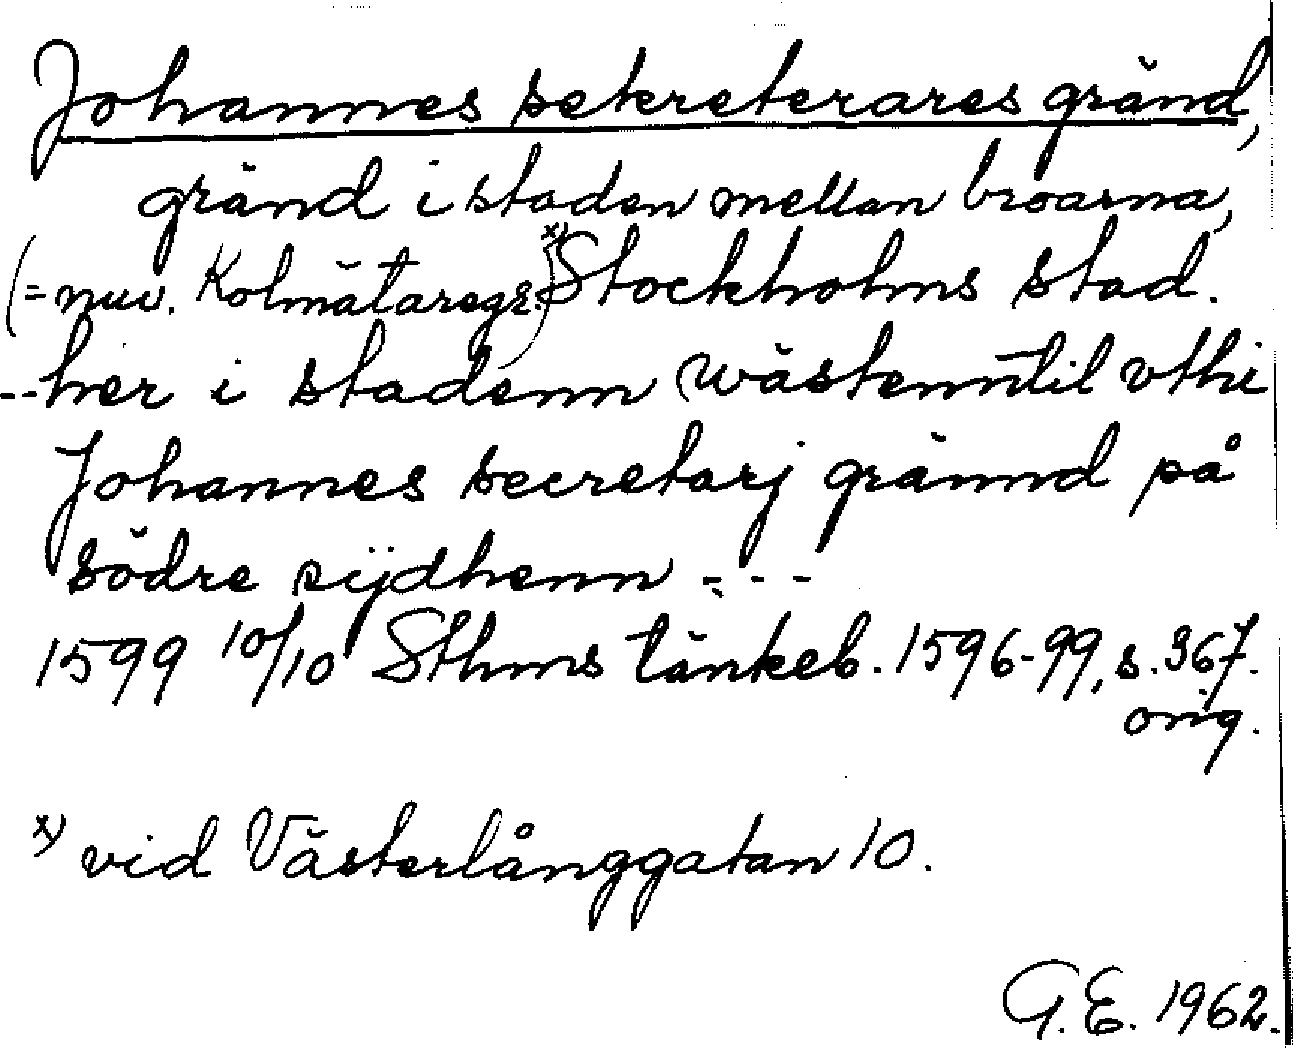 Johannes sekreterares gränd,
gränd i staden mellan broarna,
(= nuv. Kolmätaregr.)x) Stockholms stad.
--her i stadenn wästenntil vthi
Johannes secretarj grännd på
södre sijdhenn ---
1599 10/10 Sthms tänkeb. 1596-99, s. 367.
orig.
x) vid Västerlånggatan 10.
G.E. 1962.